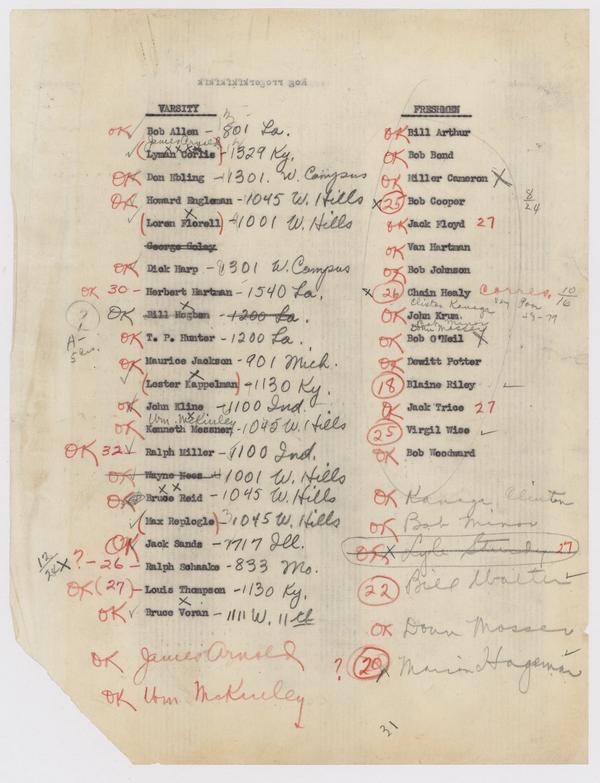 VARSITY
OK Bob Allen - 801 La.
James Arnold
(Lyman Corlis) - 1329 Ky.
OK Don Ebling - 1301 W. Campus
OK Howard Engleman - 1045 W. Hills
(Loren Florell) - 1001 W. Hills
George Golay
OK Dick Harp - 1301 W. Campus
OK 30 - Herbert Hartman - 1540 La.
? OK Bill Hogben - 1200 La.
OK T. P. Hunter - 1200 La.
OK Maurice Jackson - 901 Mich.
(Lester Kappelman) - 1130 Ky.
OK John Kline - 1100 Ind.
Wm. McKinley
OK Kenneth Messner - 1045 W. Hills
OK 32 Ralph Miller - 1100 Ind.
OK Wayne Nees - 1001 W. Hills
OK Bruce Reid - 1045 W. Hills
(Max Replogle) - 1045 W. Hills
OK Jack Sands - 1717 Ill.
12/24 x ? - 26 - Ralph Schaake - 833 Mo.
OK (27) - Louis Thompson - 1130 Ky.
OK Bruce Voran - 1111 W. 11th
OK James Arnold
OK Wm McKinley
FRESHMEN
OK Bill Arthur
OK Bob Bond
OK Miller Cameron X
x 25 Bob Cooper 8/24
OK Jack Floyd 27
OK Van Hartman
OK Bob Johnson
x 26 Chain Healy Corres. 10/16
Clinton Kanaga
OK John Krum
OK Bob O'Neil X
OK Dewitt Potter
18 Blaine Riley
OK Jack Trice 27
25 Virgil Wise
OK Bob Woodward
OK Kanaga, Clinton
OK Bob Minor
OK x Lyle Sturdy 27
22 Bill Walter
OK Doun Mosser
? 20 x Marion Hageman
31